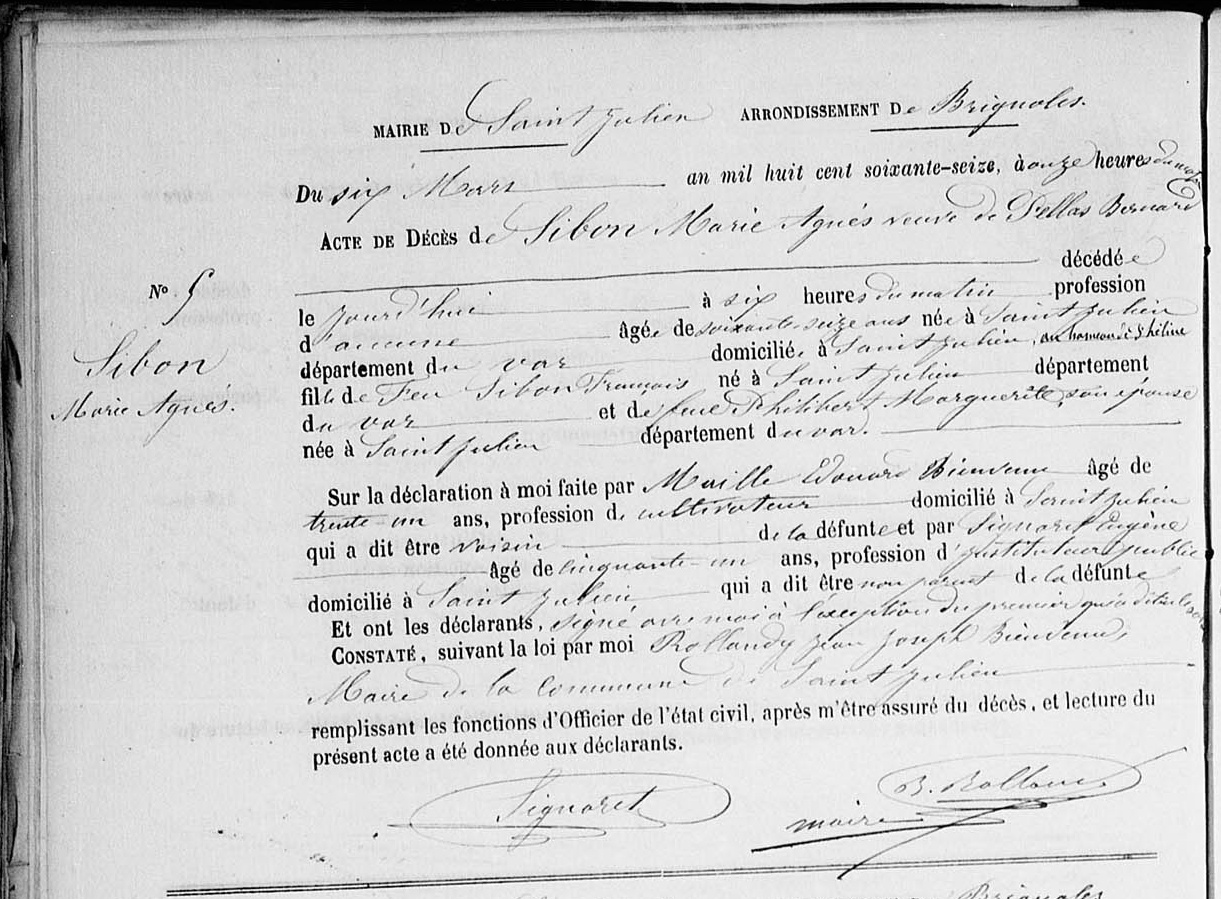 MAIRIE De Saint Julien ARRONDISSEMENT De Brignoles.
Du six Mars an mil huit cent soixante-seize, à onze heures du matin
ACTE DE DÉCÈS de Sibon Marie Agnés veuve de Pellas Bernard
décédée
N° 5
le jourd'hui à six heures du matin profession
d'aucune âgée de soixante-seize ans née à Saint Julien
Sibon
département du var domiciliée à Saint Julien, au hameau de
Marie Agnés.
fille de Feu Sibon François né à Saint Julien département
du var et de feue Philibert Marguerite, son épouse
née à Saint Julien département du var.
Sur la déclaration à moi faite par Maille Edouard Bienvenu âgé de
trente-un ans, profession de cultivateur domicilié à Saint Julien
qui a dit être voisin de la défunte et par Signoret Eugène
âgé de cinquante-un ans, profession d'instituteur public
domicilié à Saint Julien qui a dit être non parent de la défunte
Et ont les déclarants, signé avec moi à l'exception du premier qui a dit
CONSTATÉ, suivant la loi par moi Rollandy Jean Joseph Bienvenu,
Maire de la Commune de Saint Julien
remplissant les fonctions d'Officier de l'état civil, après m'être assuré du décès, et lecture du
présent acte a été donnée aux déclarants.
Signoret
maire
Brignoles